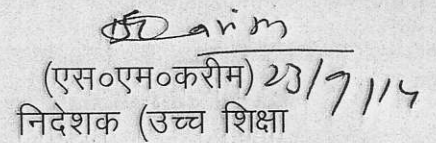 (एस०एम०करीम) 23/9/14
निदेशक (उच्च शिक्षा